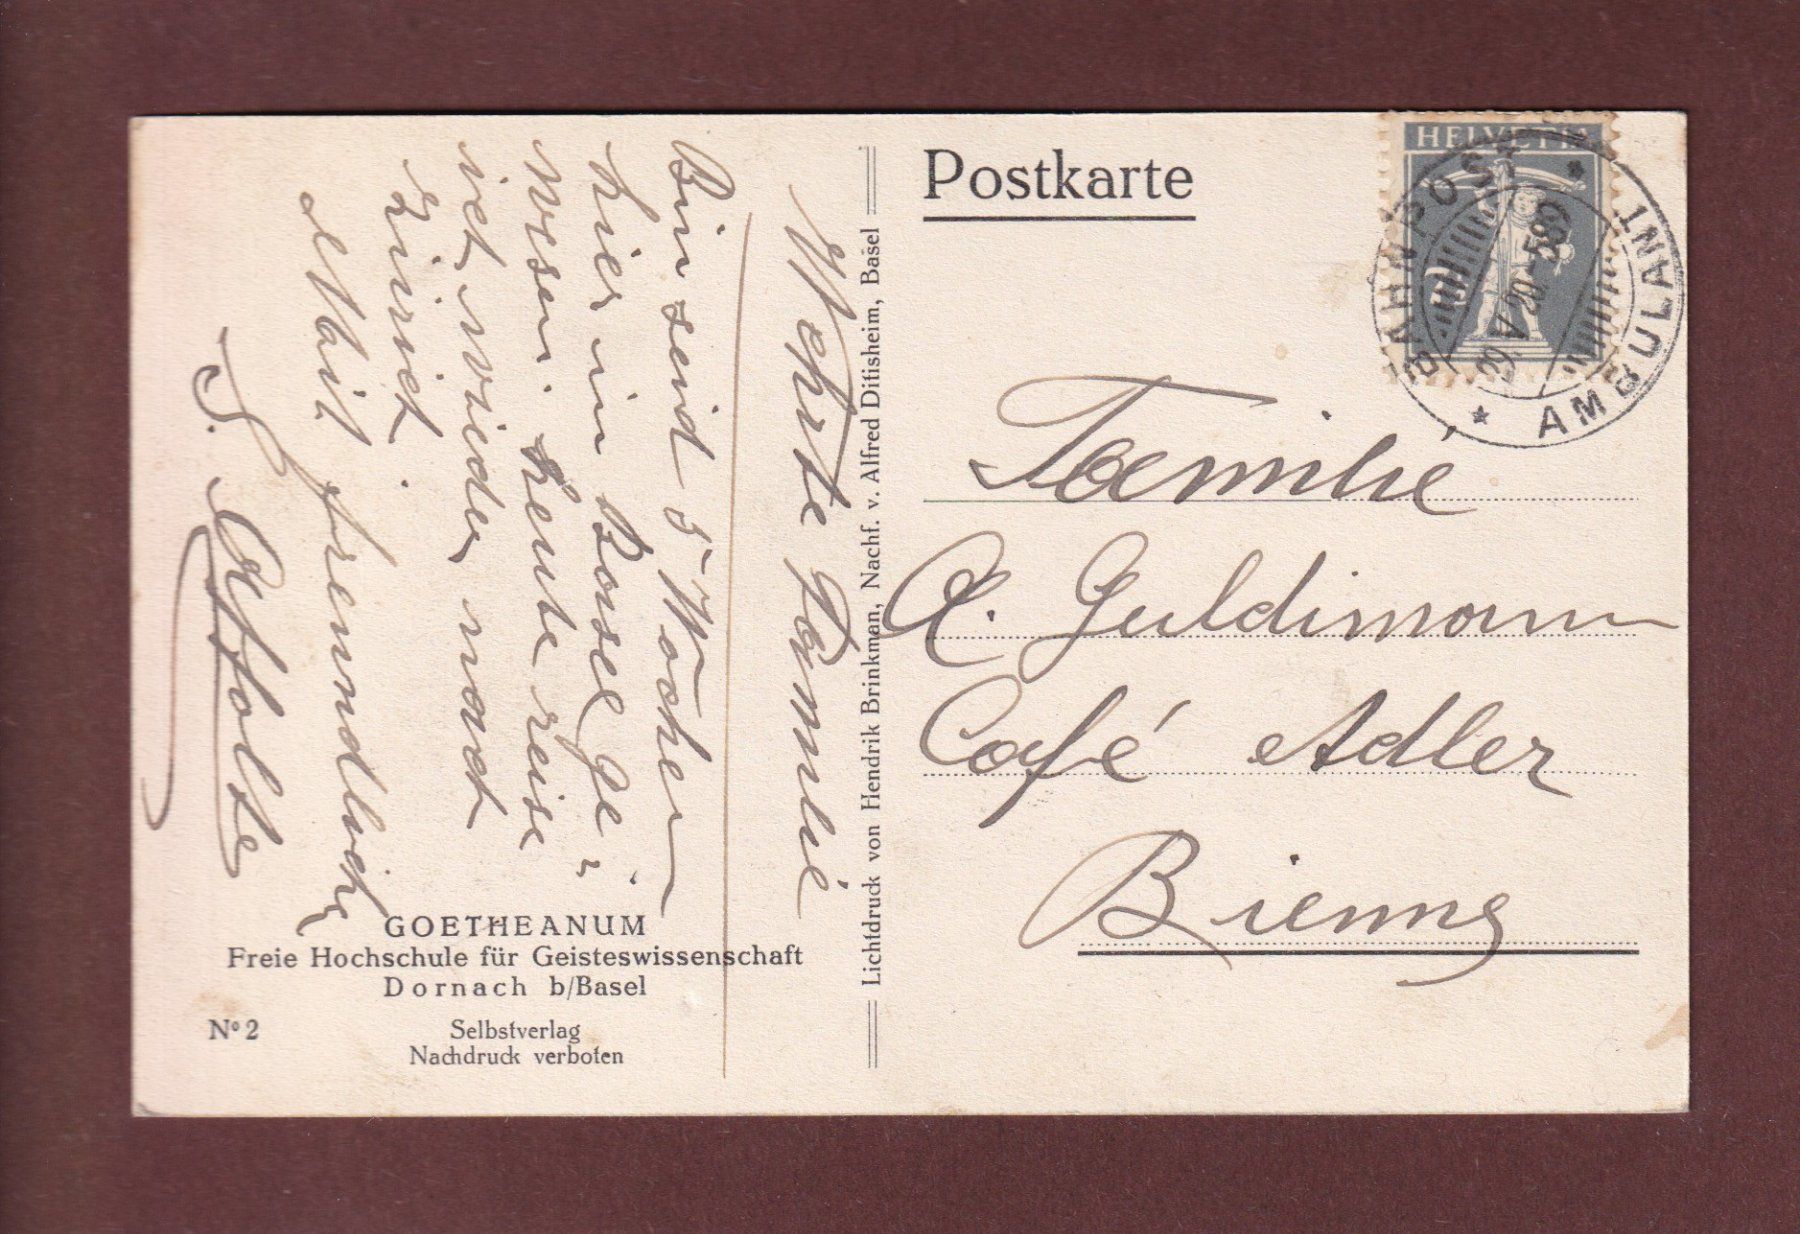 Postkarte
HELVETIA
BAHNPOST
AMBULANT
Familie
A. Guldimann
Café Adler
Bienne
Lichtdruck von Hendrik Brinkman, Nachf. v. Alfred Ditisheim, Basel
Werte Familie
Bin seid 5 Wochen
hier in Basel ge„
wesen. Heute reise
ich wieder nach
Zürich.
Mit freundliche
GOETHEANUM
Freie Hochschule für Geisteswissenschaft
Dornach b/Basel
Nº 2
Selbstverlag
Nachdruck verboten